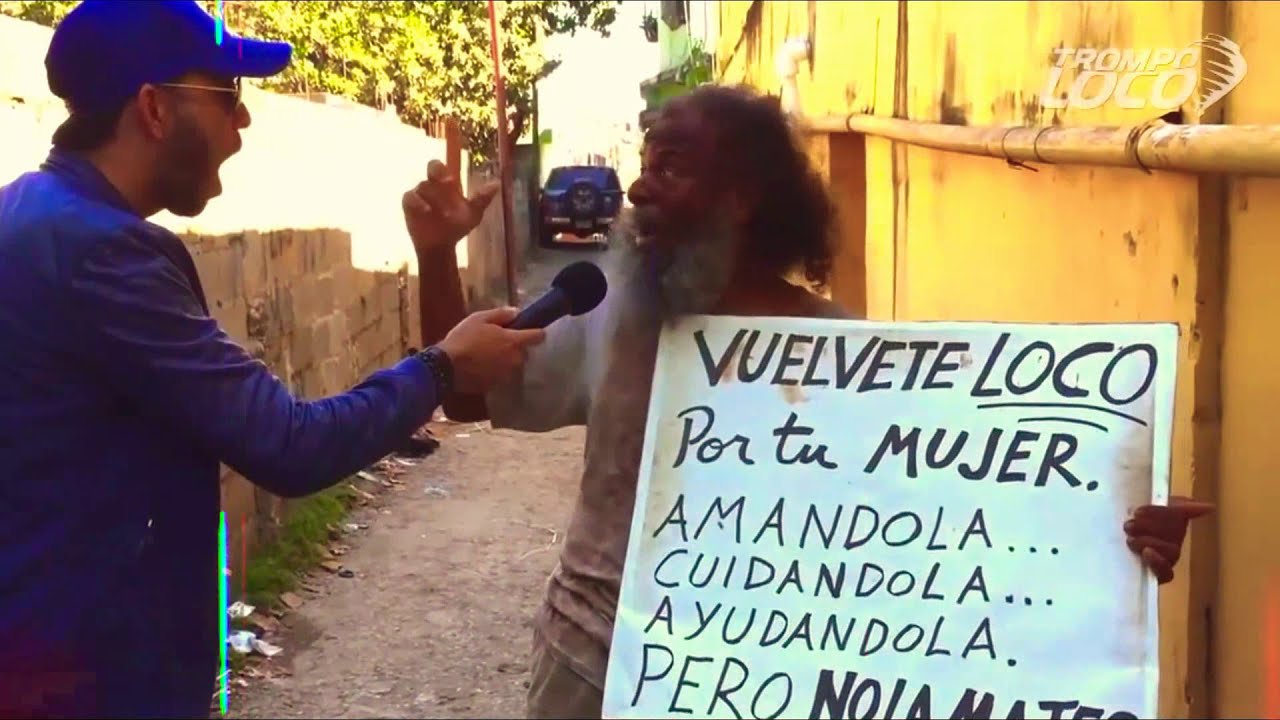 TROMPO
LOCO
VUELVETE LOCO
Por tu MUJER.
AMANDOLA...
CUIDANDOLA...
AYUDANDOLA.
PERO NO LA MATES